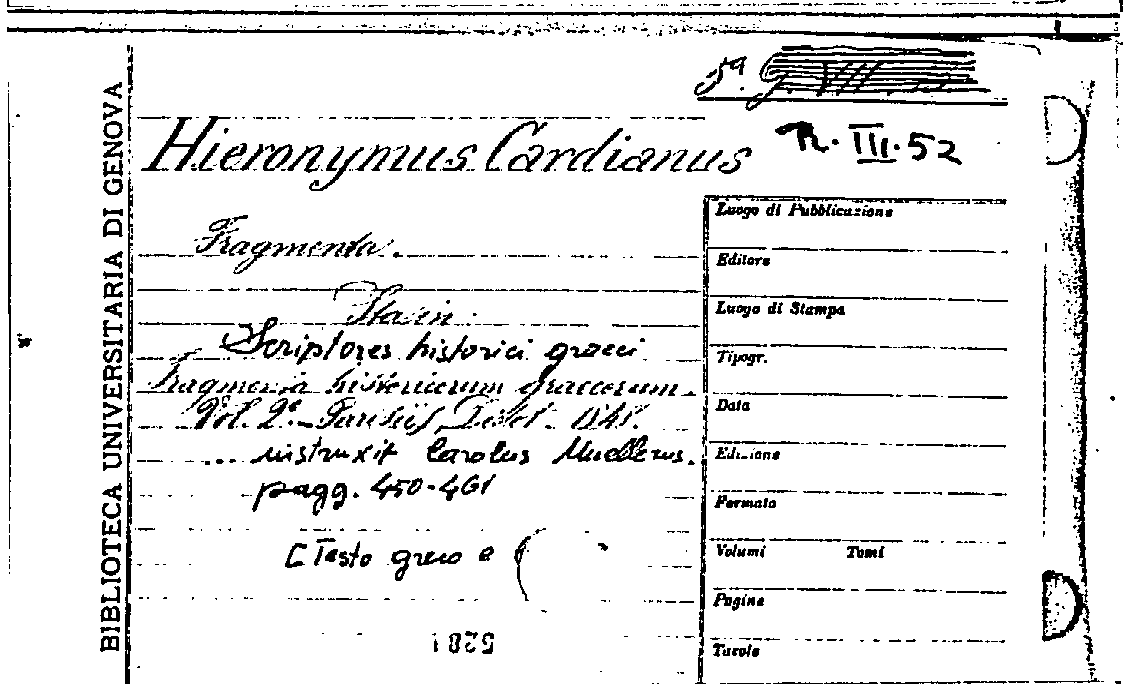 BIBLIOTECA UNIVERSITARIA DI GENOVA
5ª.
Hieronymus Cardianus
R. III. 52
Fragmenta.
Sta in:
Scriptores historici graeci
Fragmenta historicorum graecorum.
Vol. 2º. Parisiis, Didot.
... instruxit Carolus Muellerus.
pagg. 450-461
[Testo greco e
5281
Luogo di Pubblicazione
Editore
Luogo di Stampa
Tipogr.
Data
Edizione
Formato
Volumi Tomi
Pagine
Tavole